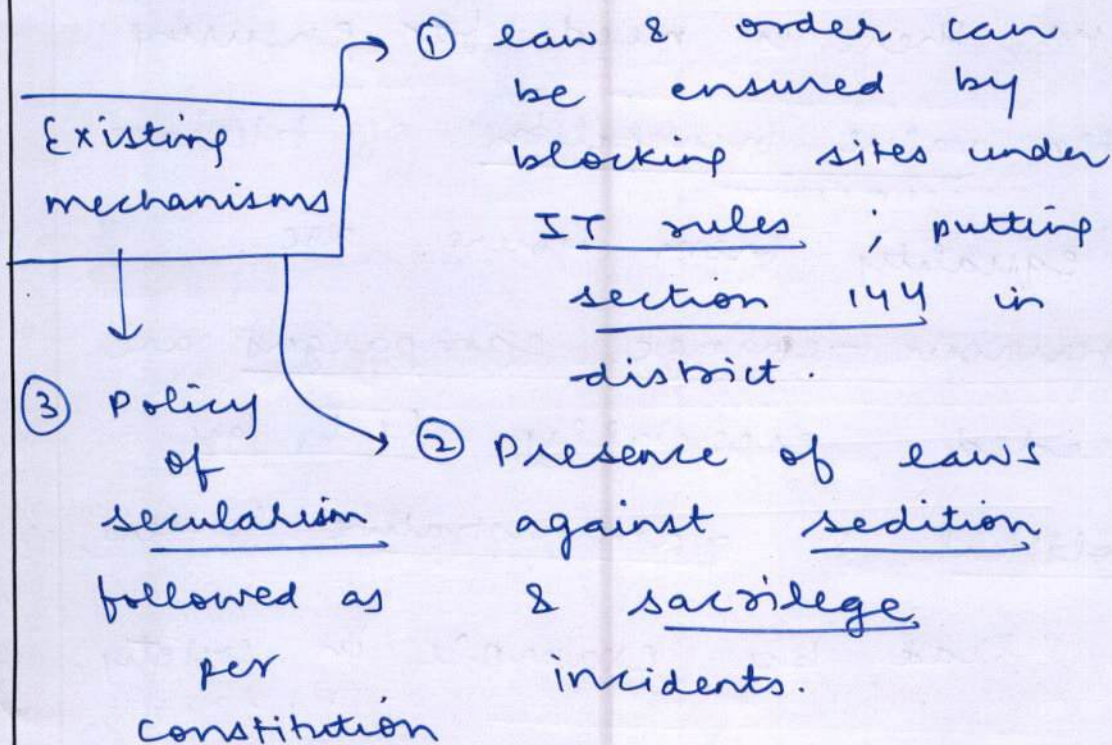 Existing
mechanisms
① law & order can
be ensured by
blocking sites under
IT rules ; putting
section 144 in
district.
② Presence of laws
against sedition
& sacrilege
incidents.
③ Policy
of
secularism
followed as
per
constitution